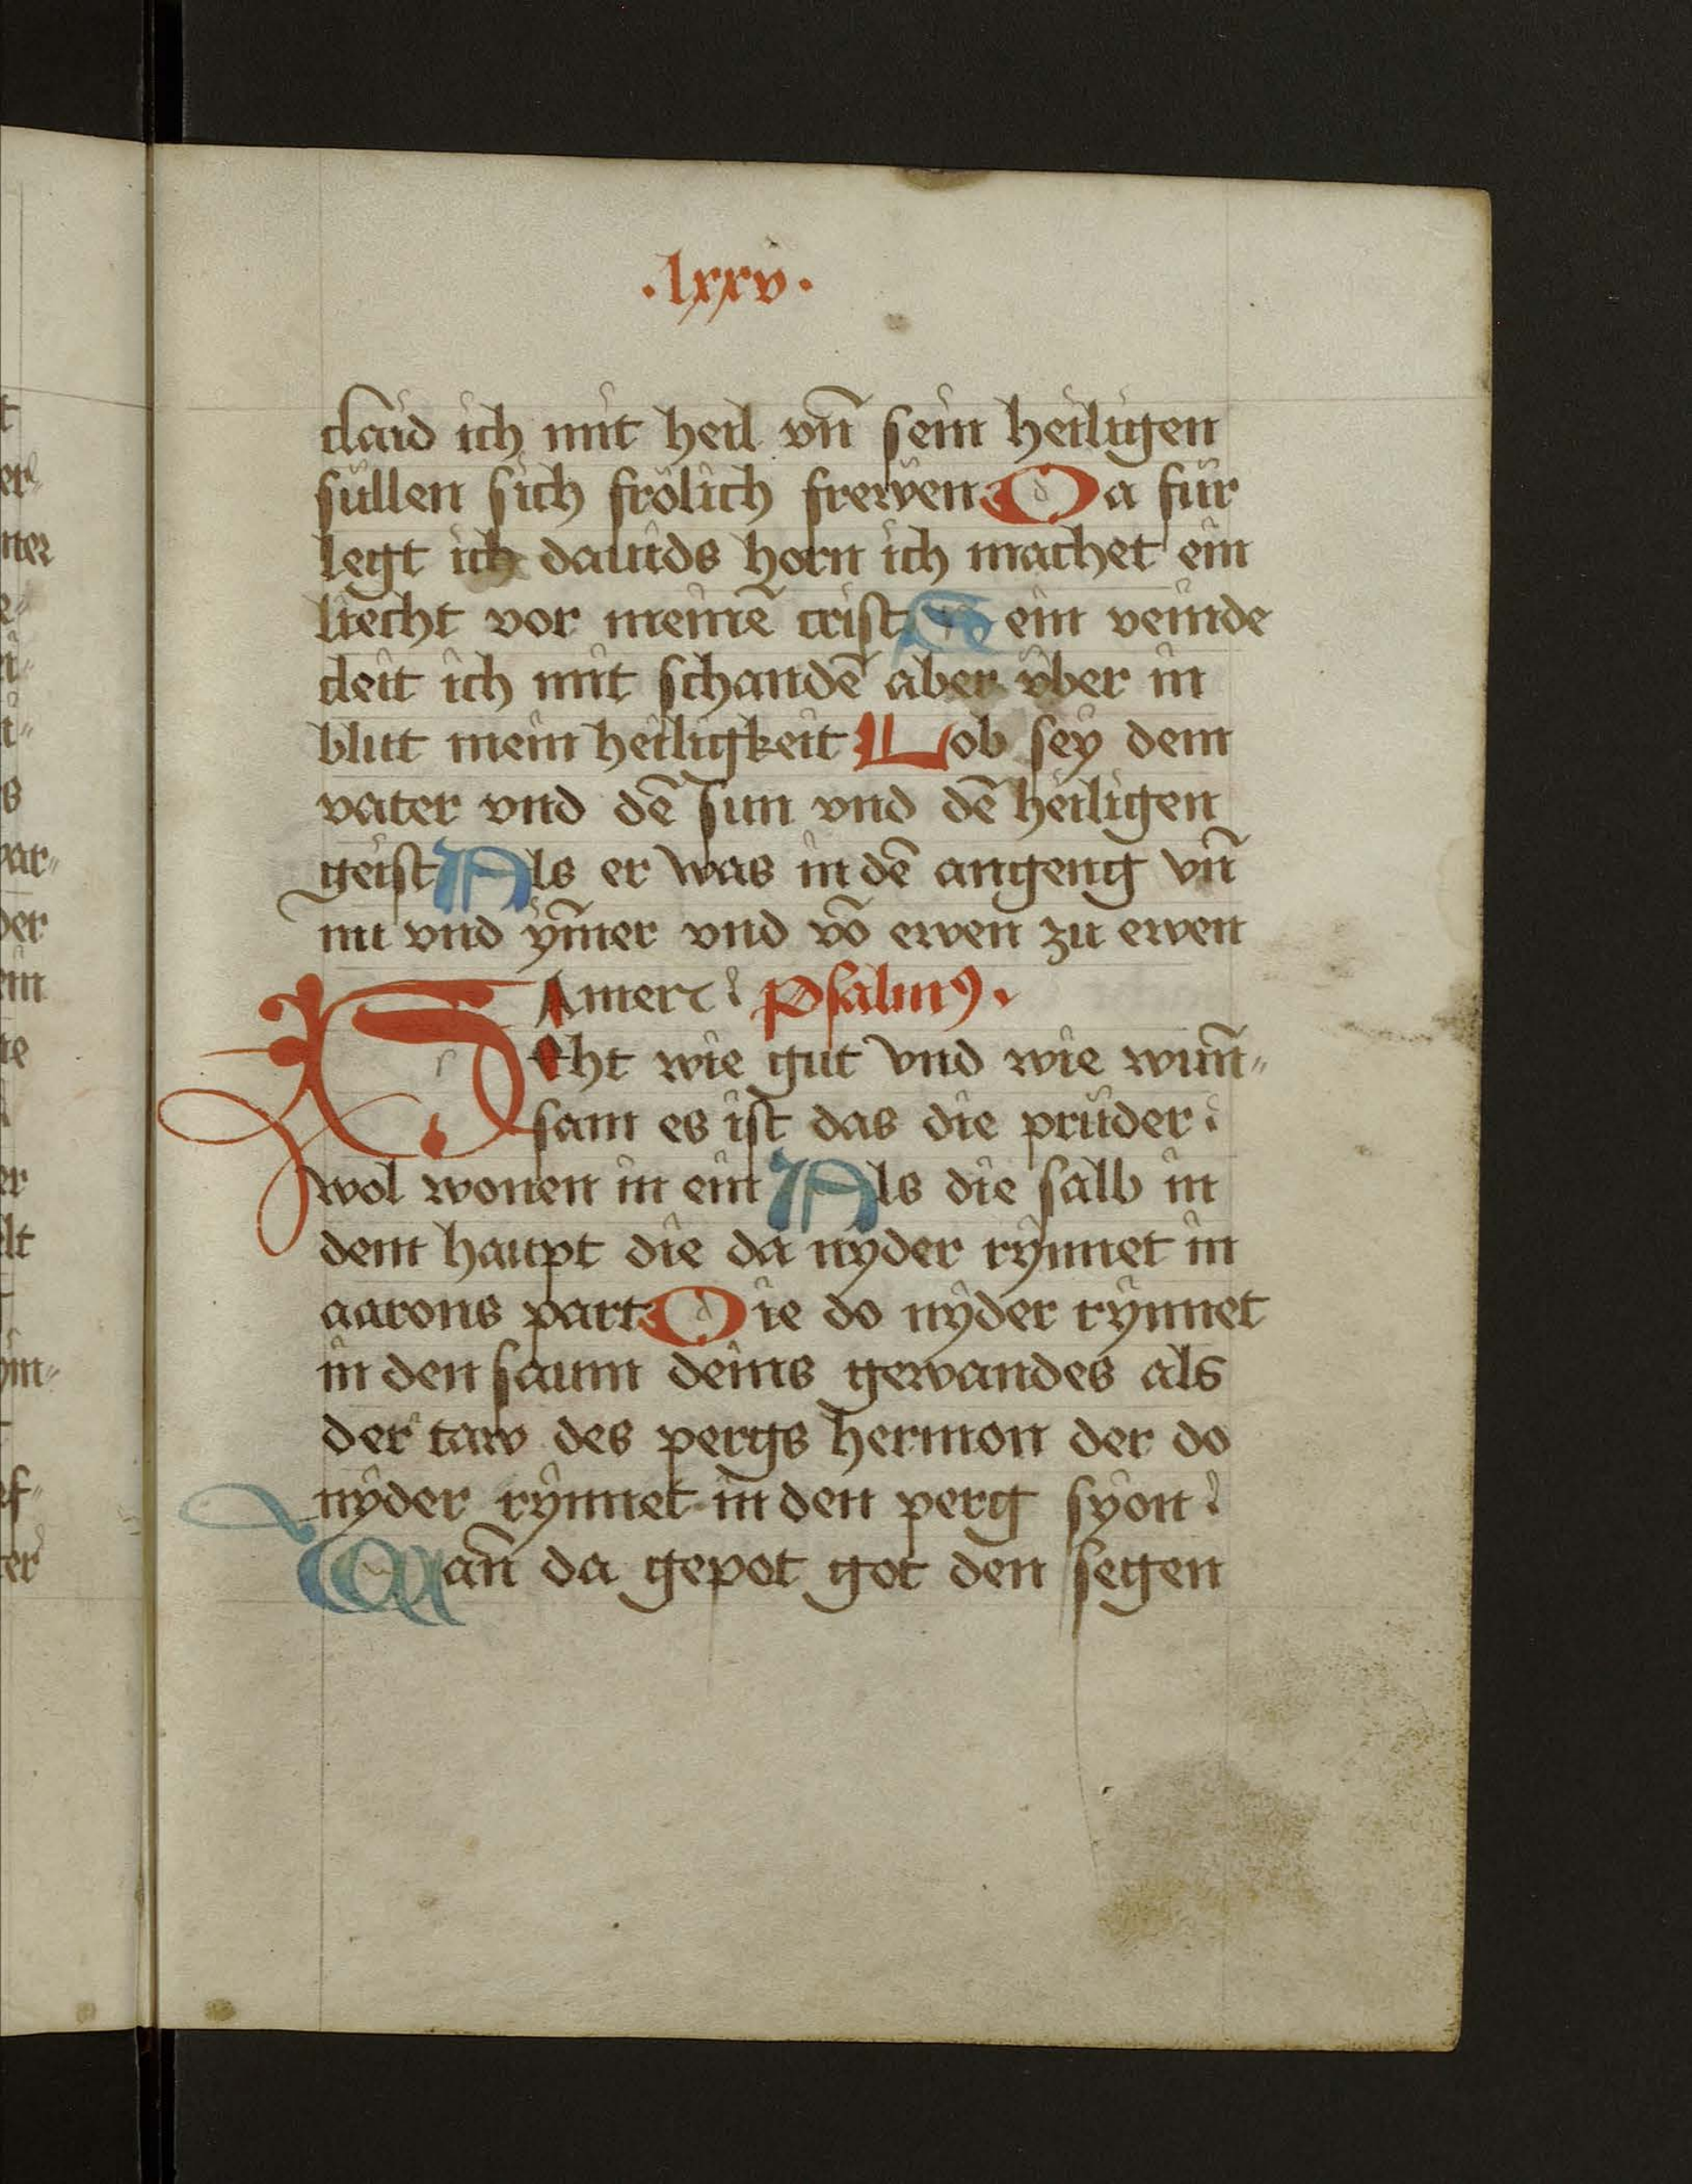 .lxxv.
claid ich mit heil vn̄ sein heiligen
süllen sich frölich frewen Da für
legt ich dauids horn ich machet ein
liecht vor meinē crist Sein veinde
cleit ich mit schandē aber vber in
blut mein heiligkeit Lob sey dem
vater vnd dē sun vnd dē heiligen
geist Als er was in dē angeng vn̄
nu vnd ym̄er vnd vō ewen zu ewen
Amen Psalmꝰ.
Seht wie gut vnd wie wun̄-
sam es ist das die prüder
wol wonen in ein Als die salb in
dem haupt die da nyder rynnet in
aarons part Die do nyder rynnet
in den saum deins gewandes als
der taw des pergs hermon der do
nyder rynnet in den perg syon
Wan̄ da gepot got den segen